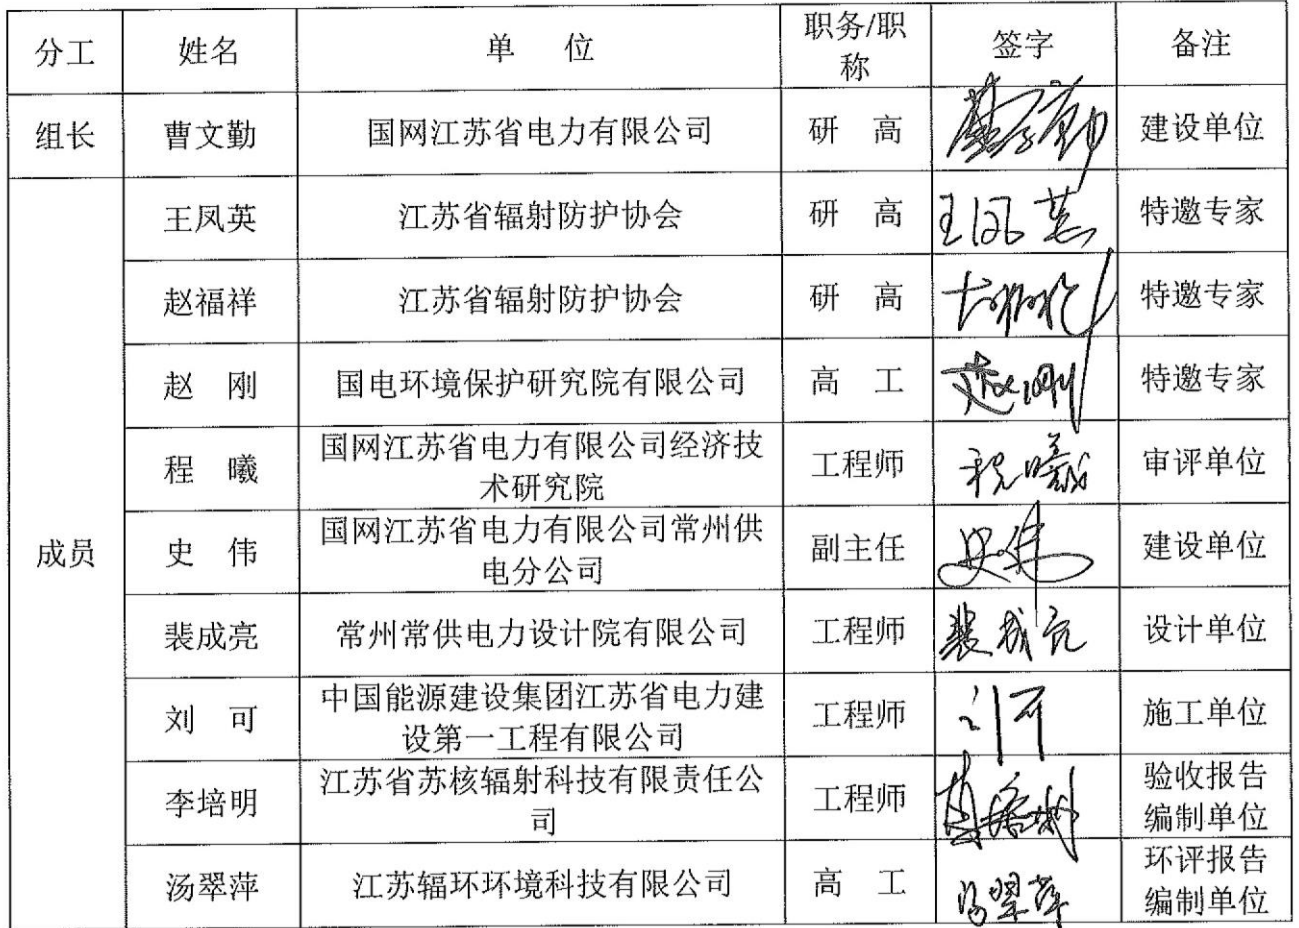 分工 姓名 单 位 职务/职称 签字 备注
组长 曹文勤 国网江苏省电力有限公司 研 高 建设单位
成员 王凤英 江苏省辐射防护协会 研 高 王凤英 特邀专家
赵福祥 江苏省辐射防护协会 研 高 特邀专家
赵 刚 国电环境保护研究院有限公司 高 工 赵刚 特邀专家
程 曦 国网江苏省电力有限公司经济技术研究院 工程师 程曦 审评单位
史 伟 国网江苏省电力有限公司常州供电分公司 副主任 史伟 建设单位
裴成亮 常州常供电力设计院有限公司 工程师 裴成亮 设计单位
刘 可 中国能源建设集团江苏省电力建设第一工程有限公司 工程师 刘可 施工单位
李培明 江苏省苏核辐射科技有限责任公司 工程师 验收报告编制单位
汤翠萍 江苏辐环环境科技有限公司 高 工 汤翠萍 环评报告编制单位